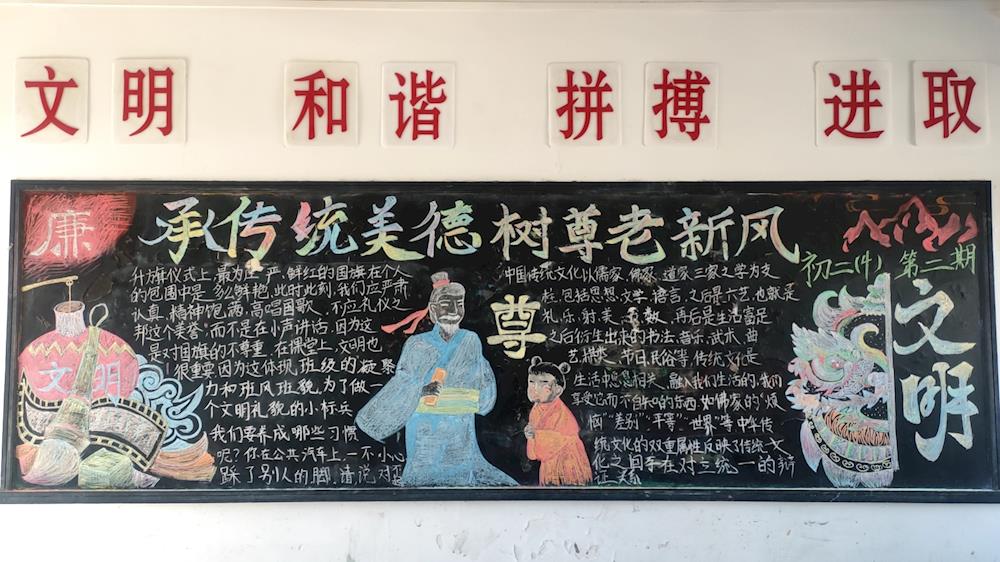 文明 和谐 拼搏 进取
廉
承传统美德 树尊老新风
初二(4) 第二期
文明
文明
尊
升旗仪式上,最为庄严,鲜红的国旗在个人
的包围中是多么鲜艳,此时此刻,我们应严肃
认真,精神饱满,高唱国歌,不应礼仪之
邦这个美誉"而不是在小声讲话,因为这
是对国旗的不尊重,在课堂上,文明也
很重要因为这体现,班级的凝聚
力和班风班貌,为了做一
个文明礼貌的小标兵
我们要养成哪些习惯
呢?你在公共汽车上,一不小心
踩了别人的脚,请说对
中国传统文化以儒家、佛家、道家三家之学为支
柱,包括思想、文学、语言,之后是六艺,也就是
礼、乐、射、再后是生活富足
之后衍生出来的书法、音乐、武术、曲
艺、棋、节日、民俗等,传统文化是
生活中息息相关,融入我们生活的,我们
享受它而不自知的东西,如佛家的"烦
恼""差别""平等""世界"等
统文化的双重属性反映了传统文
化之间存在对立统一的辩
证关系